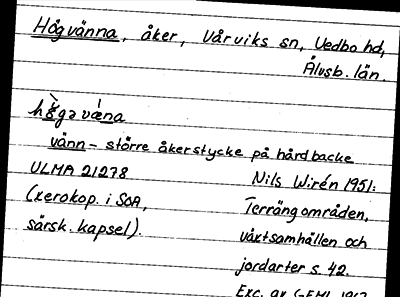 Högvänna, åker, Vårviks sn, Vedbo hd,
Älvsb. län.
vänn - större åkerstycke på hård backe
ULMA 21278
(xerokop. i SOA,
särsk. kapsel).
Nils Wirén 1951:
Terrängområden,
växtsamhällen och
jordarter s. 42.
Exc. av